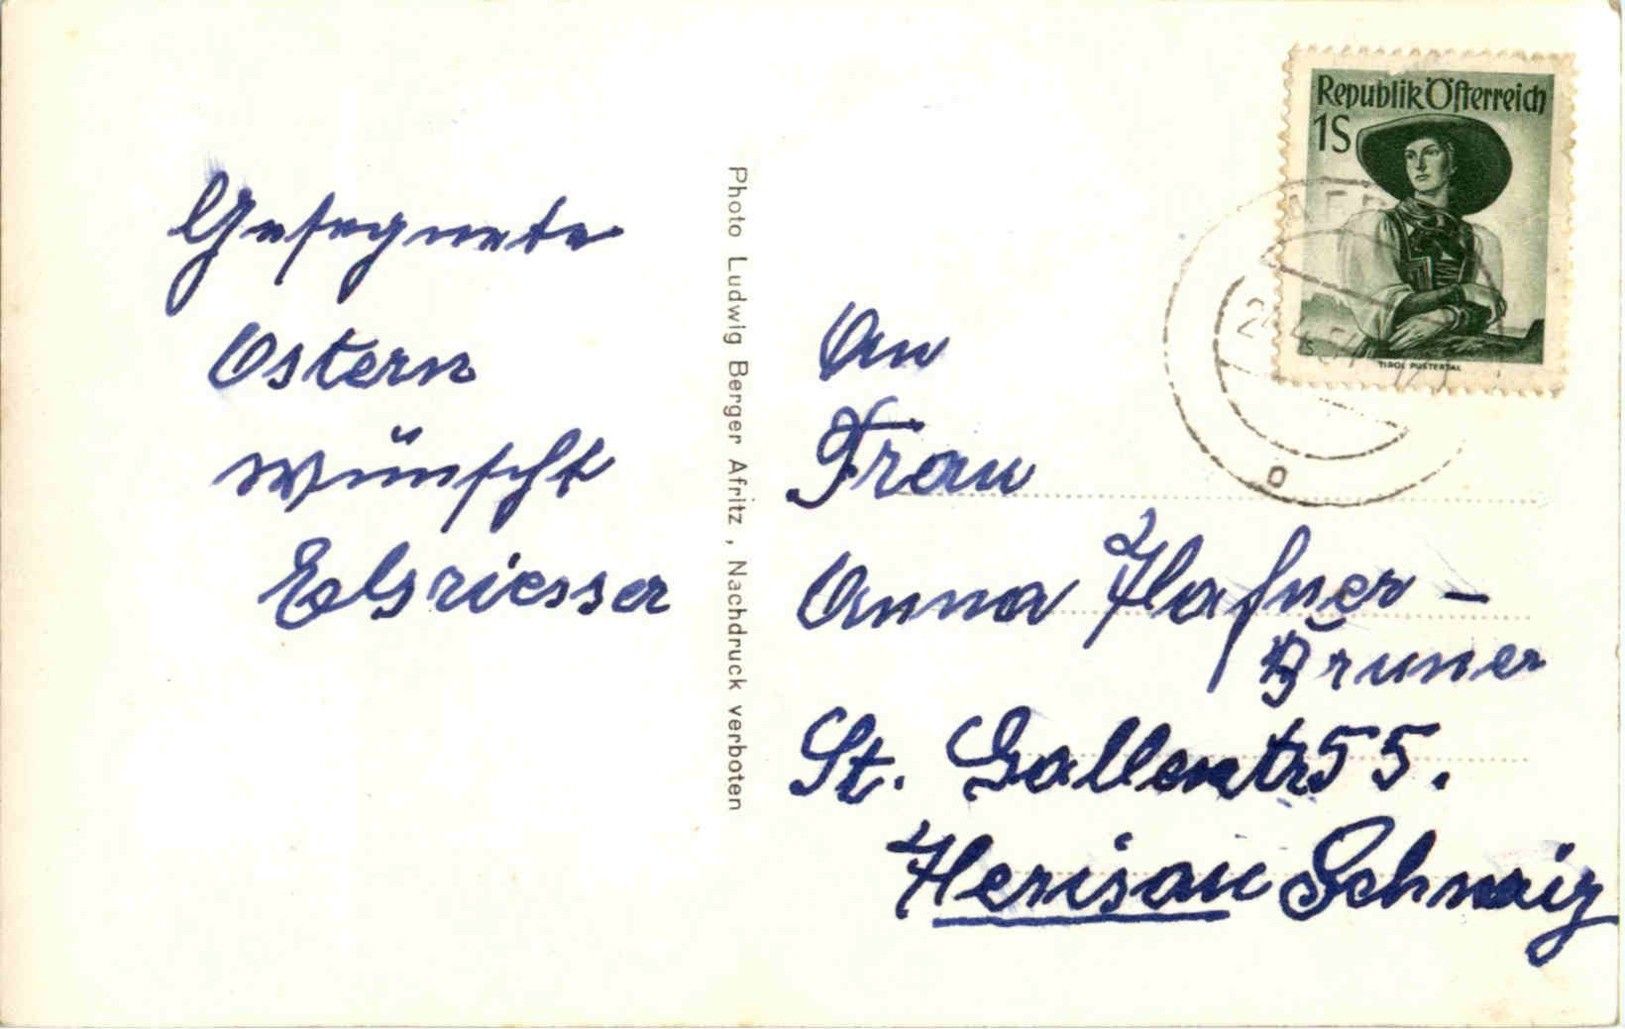 Gesegnete
Ostern
wünscht
Elsriesser
Photo Ludwig Berger Afritz, Nachdruck verboten
Republik Österreich
1S
TIROL PUSTERTAL
An
Frau
Anna Hafner -
Bruner
St. Gallerstr 55.
Herisau Schweiz